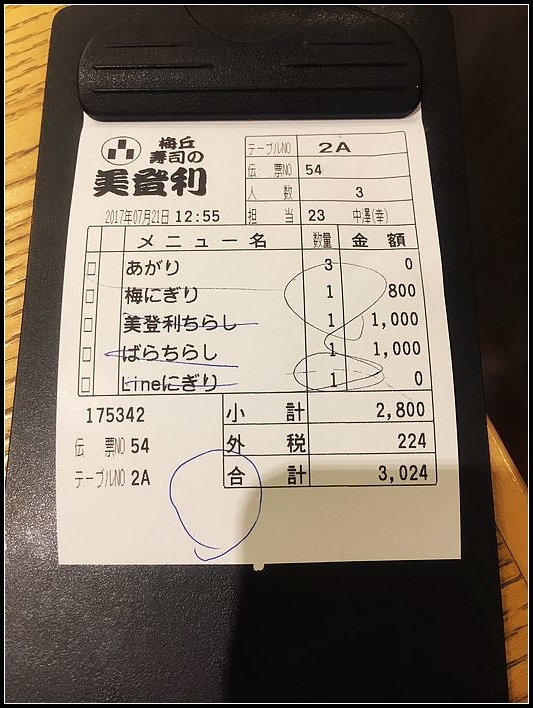 梅丘
寿司の
美登利
テーブルNO 2A
伝 票NO 54
人 数 3
2017年07月21日 12:55
担 当 23 中澤(幸)
メニュー名 数量 金 額
あがり 3 0
梅にぎり 1 800
美登利ちらし 1 1,000
ばらちらし 1 1,000
Lineにぎり 1 0
175342
小 計 2,800
伝 票NO 54
外 税 224
テーブルNO 2A
合 計 3,024